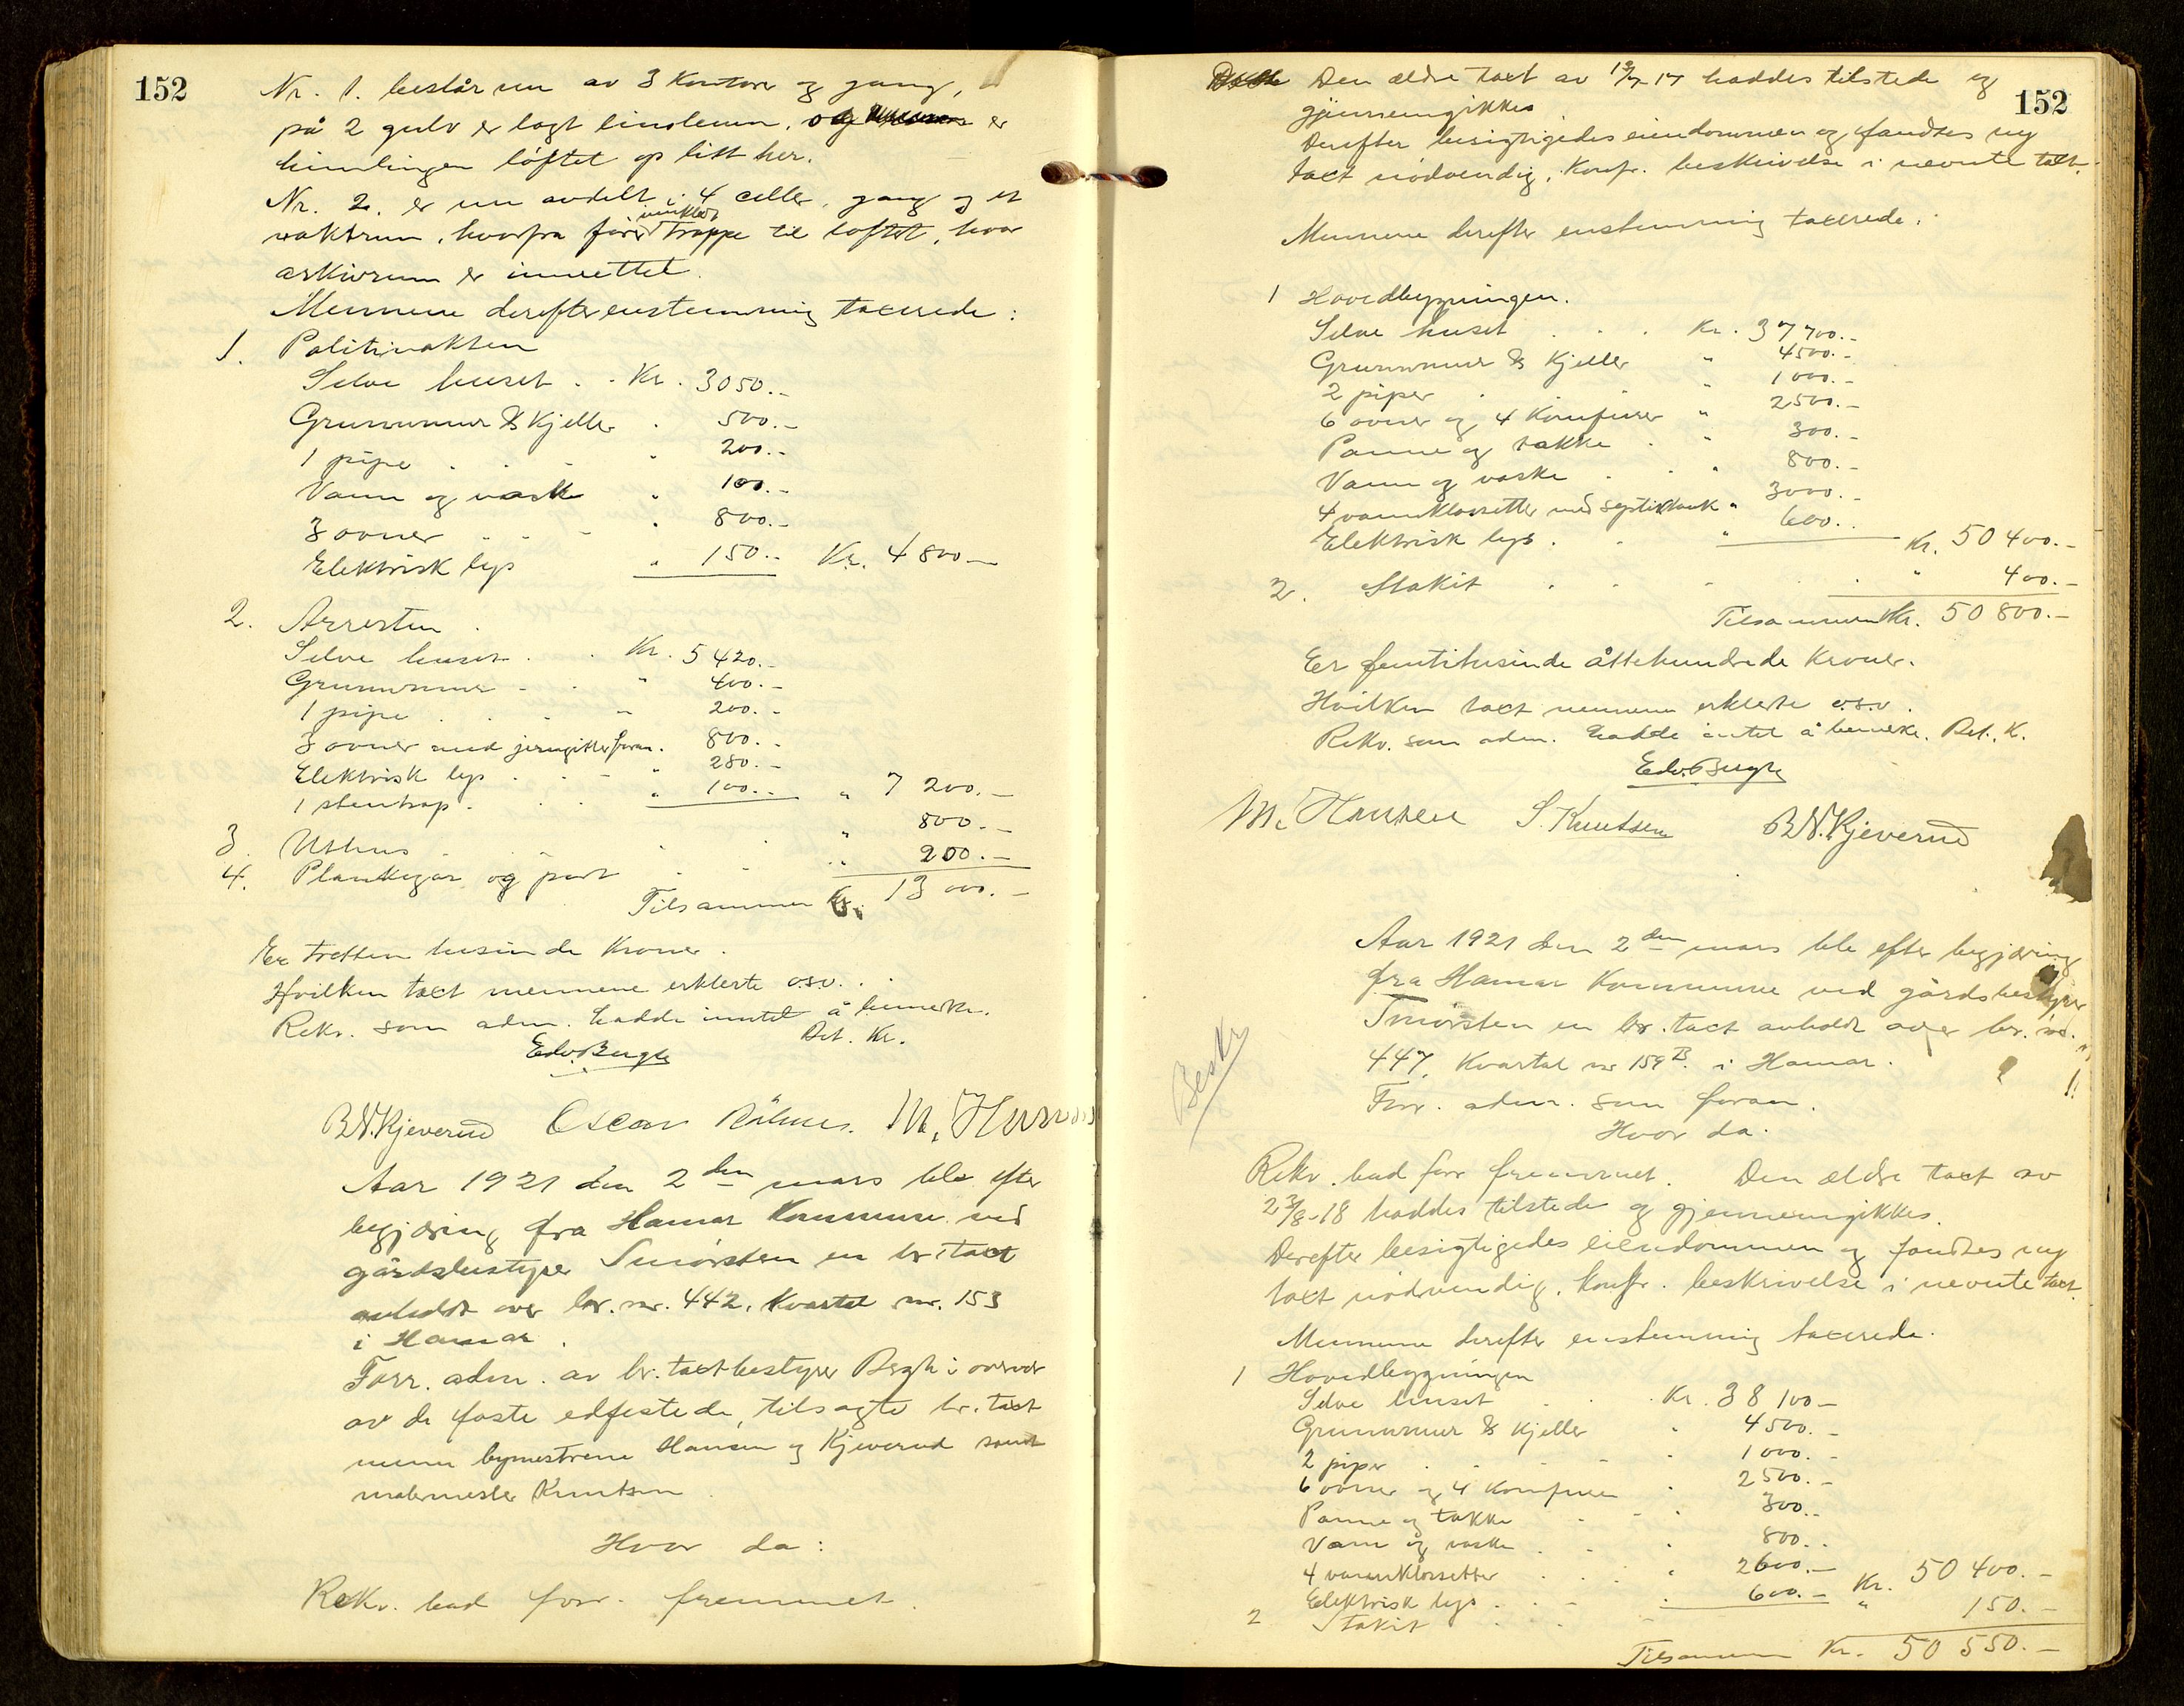 152
Nr. 1. består nu av 3 kontorer og gang,
på 2 gulv er lagt linoleum, og er
himlingen løftet op litt her.
Nr. 2. er nu avdelt i 4 celler, gang og et
vaktrum, hvorfra fører innkledt trappe til loftet, hvor
arkivrum er innrettet.
Mennene derefter enstemmig taxerede:
1. Politivakten
Selve huset . . Kr. 3050.-
Grunnmur & Kjeller . 500.-
1 pipe . . . " 200.-
Vann og vask " 100.-
3 ovner . . . " 800.-
Elektrisk lys " 150.- Kr. 4800.-
2. Arresten.
Selve huset . . Kr. 5420.-
Grunnmur . . " 400.-
1 pipe . . . " 200.-
3 ovner med jerngitter foran. 800.-
Elektrisk lys . . . " 280.-
1 stentrap. . . " 100.- " 7 200.-
3. Uthus . . . " 800.-
4. Plankegjær og port . . " 200.-
Tilsammen Kr. 13 000.-
Er tretten tusinde kroner.
Hvilken taxt mennene erklerte o.s.v. .
Rekv. som adm. hadde inntet å bemerke.
Bet. Kr.
Edv. Bergh
B.N. Kjeverud Oscar M. Hansen
Aar 1921 den 2den mars ble efter
begjæring fra Hamar Kommune ved
gårdsbestyrer Smörsten en br. taxt
avholdt over br. nr. 442, Kvartal nr. 153
i Hamar.
Forr. adm. av br. taxtbestyrer Bergh i overvær
av de faste edfestede, tilsagte br. taxt
menn bymestrene Hansen og Kjeverud samt
malermester Knutsen.
Hvor da:
Rekv. bad forr. fremmet.
152
Den ældre taxt av 12/7-17 haddes tilstede og
gjennemgikkes
Derefter besigtigedes eiendommen og fandtes ny
taxt nödvendig, konfr. beskrivelse i nevnte taxt.
Mennene derefter enstemmig taxerede:
1 Hovedbygningen.
Selve huset . . . Kr. 37 700.-
Grunnmur & Kjeller " 4500.-
2 piper . . " 1000.-
6 ovner og 4 Komfurer " 2500.-
Panne og takke . " 300.-
Vann og vaske . . " 800.-
4 vannklossetter med septiktank " 3000.-
Elektrisk lys . . " 600.- Kr. 50 400.-
2. Stakit . . . . " 400.-
Tilsammen Kr. 50 800.-
Er femtitusinde åttehundrede kroner.
Hvilken taxt mennene erklerte o.s.v.
Rekv. som adm. hadde intet å bemerke. Bet. K.
Edv. Bergh
M. Hansen S. Knutsen B.N. Kjeverud
Aar 1921 den 2den mars ble efter begjæring
fra Hamar Kommune ved gårdsbestyrer
Smörsten en br. taxt avholdt over br. nr.
447, Kvartal nr 159 B. i Hamar.
Beskr
Forr. adm. som foran.
Hvor da.
Rekv. bad forr fremmet. Den ældre taxt av
23/8-18 haddes tilstede og gjennemgikkes.
Derefter besigtigedes eiendommen og fandtes ny
taxt nødvendig, konfr. beskrivelse i nevnte taxt.
Mennene derefter enstemmig taxerede.
1 Hovedbygningen
Selve huset . . . Kr. 38 100.-
Grunnmur & Kjeller " 4500.-
2 piper . . . " 1000.-
6 ovner og 4 Komfurer . 2500.-
Panne og takke . . . 300.-
Vann og vaske . . . 800.-
4 vannklossetter . . . 2600.-
Elektrisk lys . . . 600.- Kr. 50 400.-
2 Stakit . . . " 150.-
Tilsammen Kr. 50 550.-